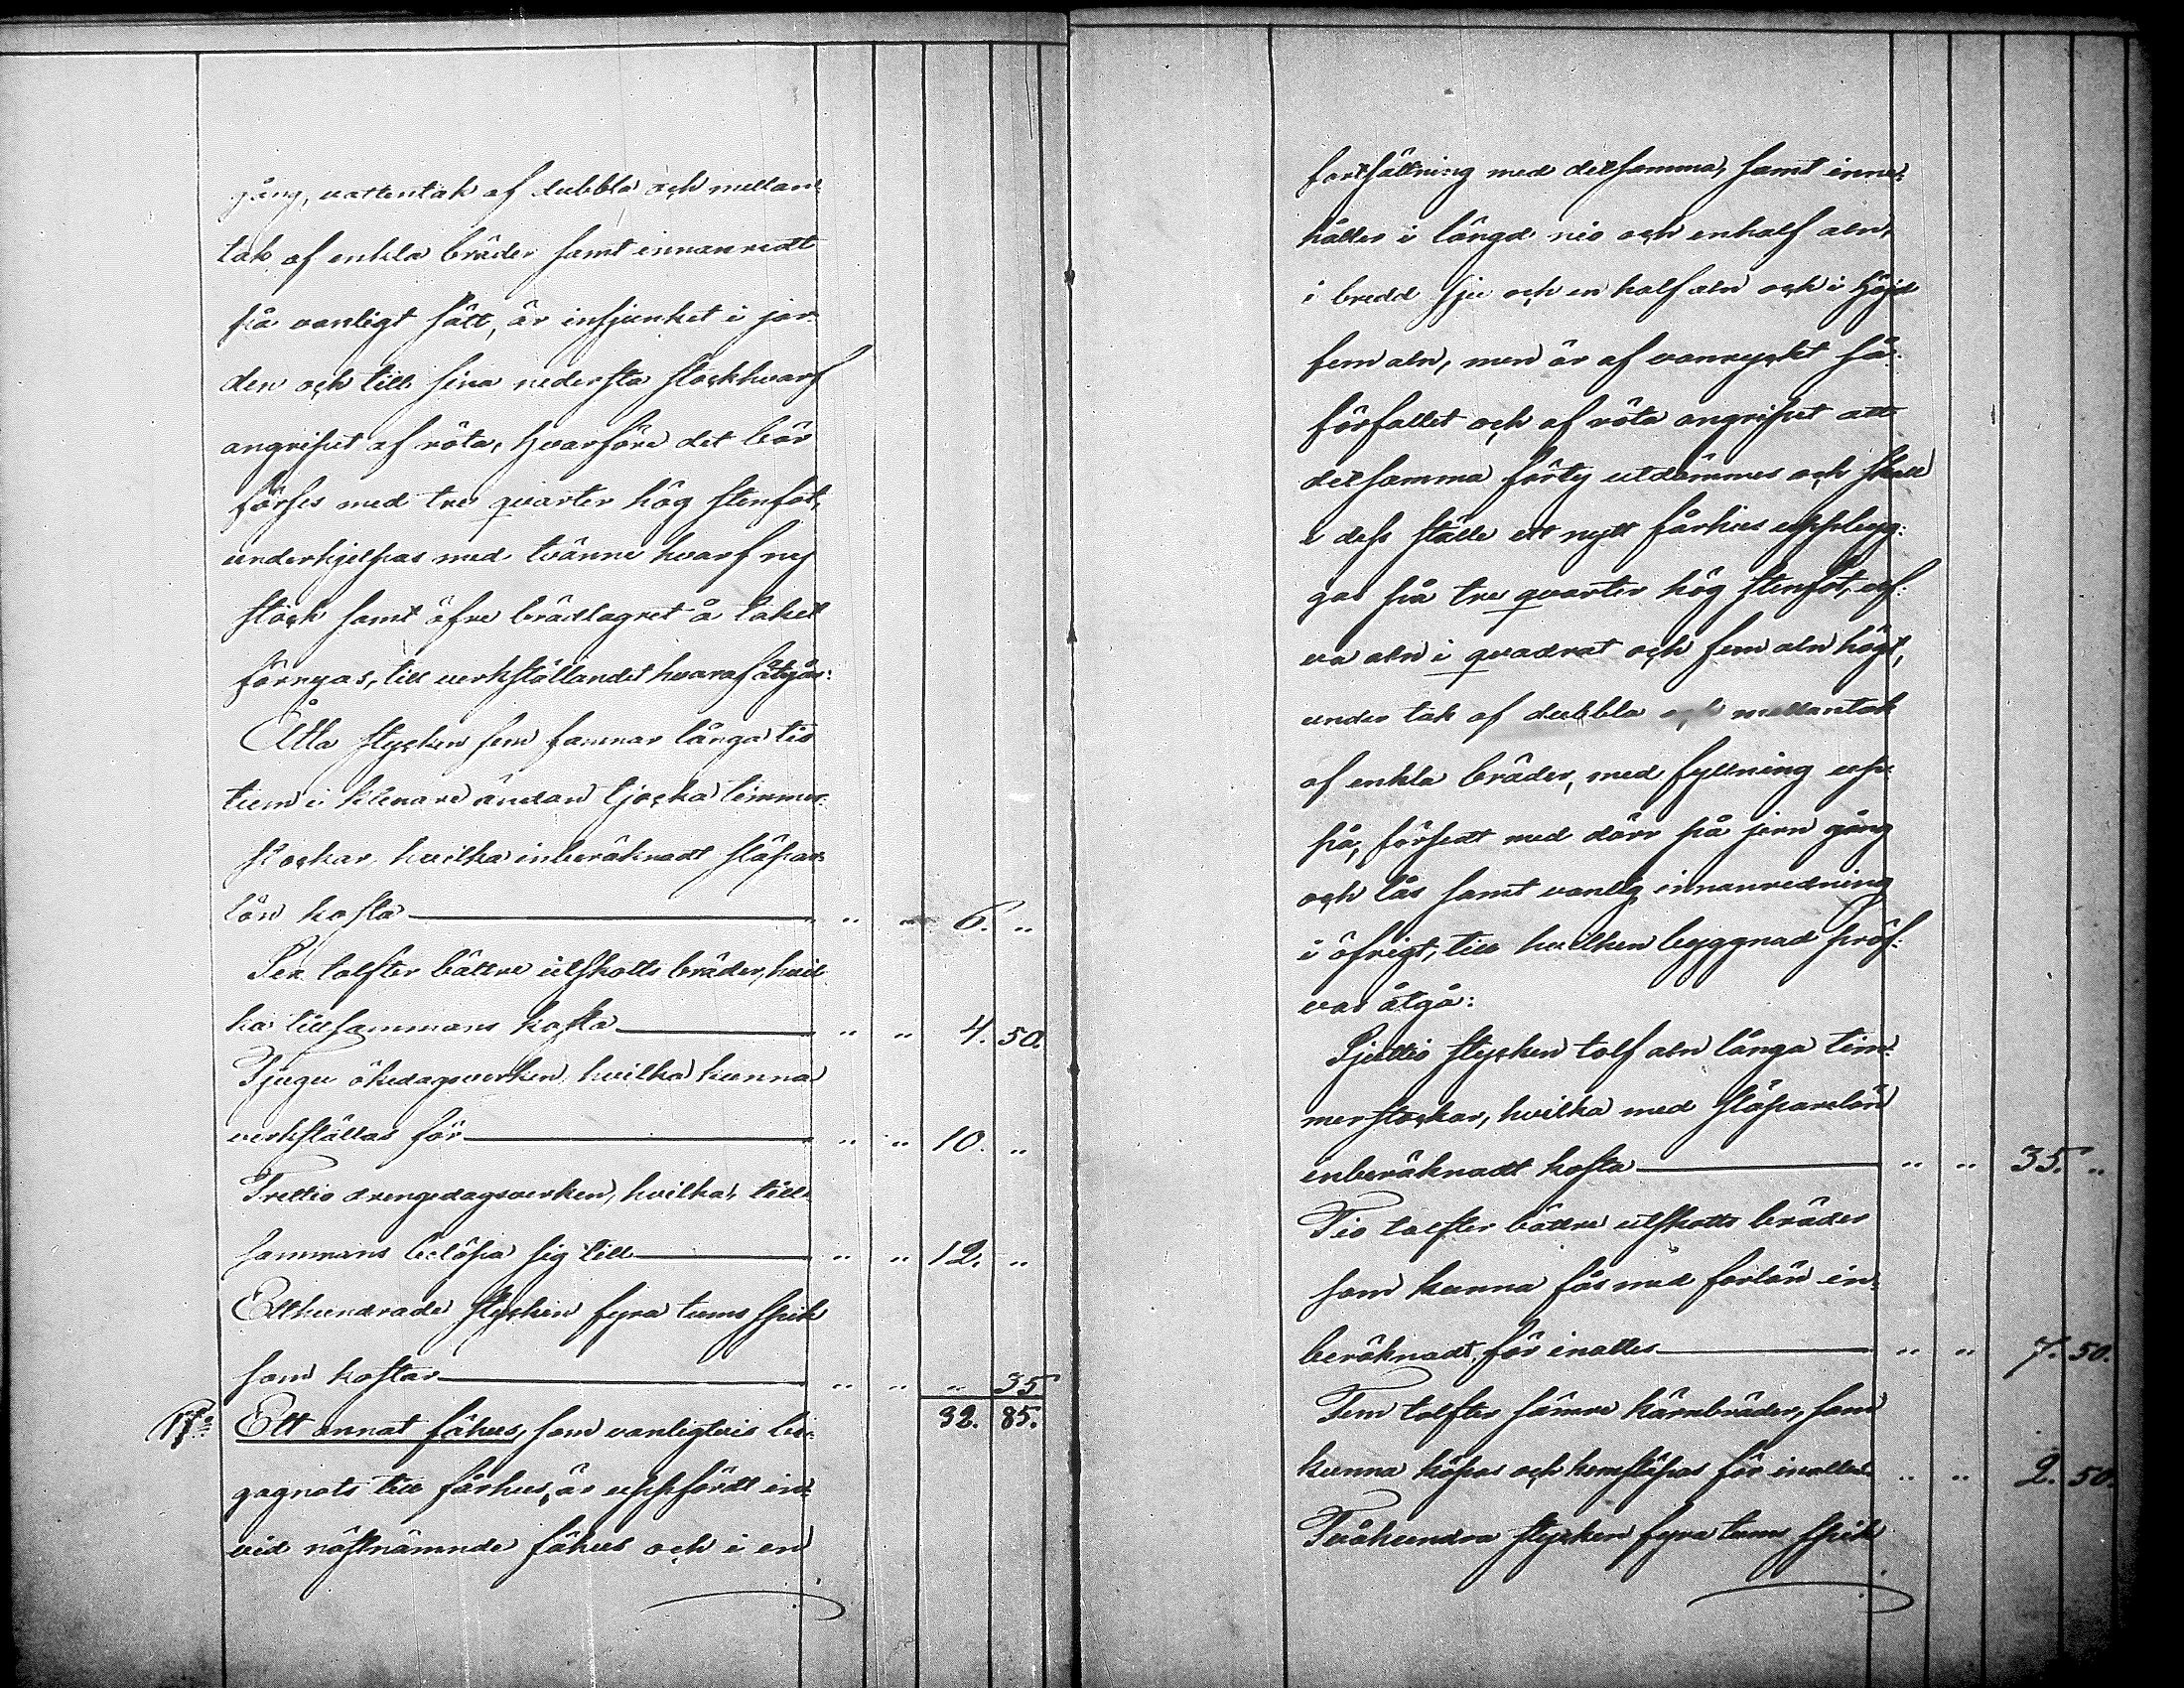 gång, vattentak af dubbla och mellan-
tak af enkla bräder samt innanredt
på vanligt sätt, är insjunket i jor-
den och till sina nedersta stockhvarf
angripet af röta, hvarföre det bör
förses med tre quarter hög stenfot,
underhjelpas med tvänne hvarf ny
stock samt öfre brädlagret å taket
förnyas, till verkställandet hvaraf åtgår:
Åtta stycken fem famnar långa tio
tum i klenare ändan tjocka timmer-
stockar, hvilka inberäknadt släpar-
lön kosta " " 6. "
Sex tolfter bättre utskotts bräder, hvil-
ka tillsammans kosta " " 4. 50.
Tjugu ökedagsverken, hvilka kunna
verkställas för " " 10. "
Trettio drengedagsverken, hvilka till-
sammans belöpa sig till " " 12. "
Etthundrade stycken fyra tums spik
som kostar " " " 35
32. 85.
Ett annat fähus, som vanligtvis be-
gagnats till fårhus, är uppfördt in-
vid nästnämnde fähus och i en
fortsättning med detsamma, samt inne-
håller i längd nio och en half aln,
i bredd sju och en half aln och i höjd
fem aln, men är af vanryckt så
förfallet och af röta angripet att
detsamma förty utdömmes och skall
i dess ställe ett nytt fårhus uppbyg-
gas på tre quarter hög stenfot, elf-
va aln i quadrat och fem aln högt,
under tak af dubbla och mellantak
af enkla bräder, med fyllning upp-
på, försedt med dörr på jern gång
och lås samt vanlig innanredning
i öfrigt, till hvilken byggnad pröf-
vas åtgå:
Sjuttio stycken tolf aln långa tim-
merstockar, hvilka med släparelön
inberäknadt kosta " " 35. "
Tio tolfter bättre utskotts bräder
som kunna fås med forlön in-
beräknadt för inalles " " 7. 50.
Fem tolfter sämre kärnbräder, som
kunna köpas och hemsläpas för inalles " " 2. 50.
Tvåhundra stycken fyra tums spik